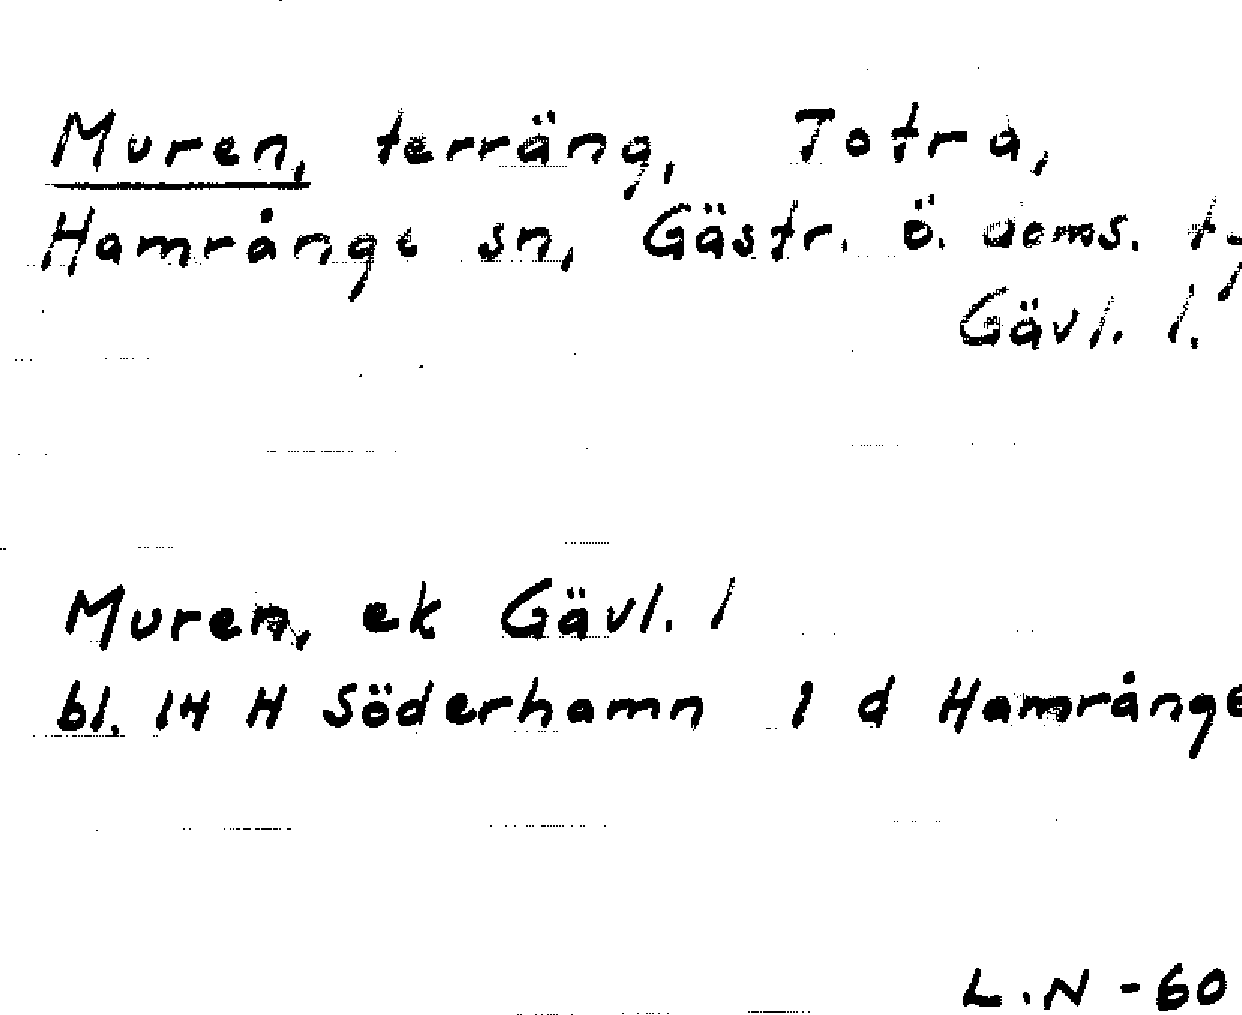 Muren, terräng, Totra,
Hamrånge sn, Gästr. ö. doms. t,
Gävl. l.
Muren, ek Gävl. l
bl. 14 H Söderhamn 1 d Hamrånge
L.N -60